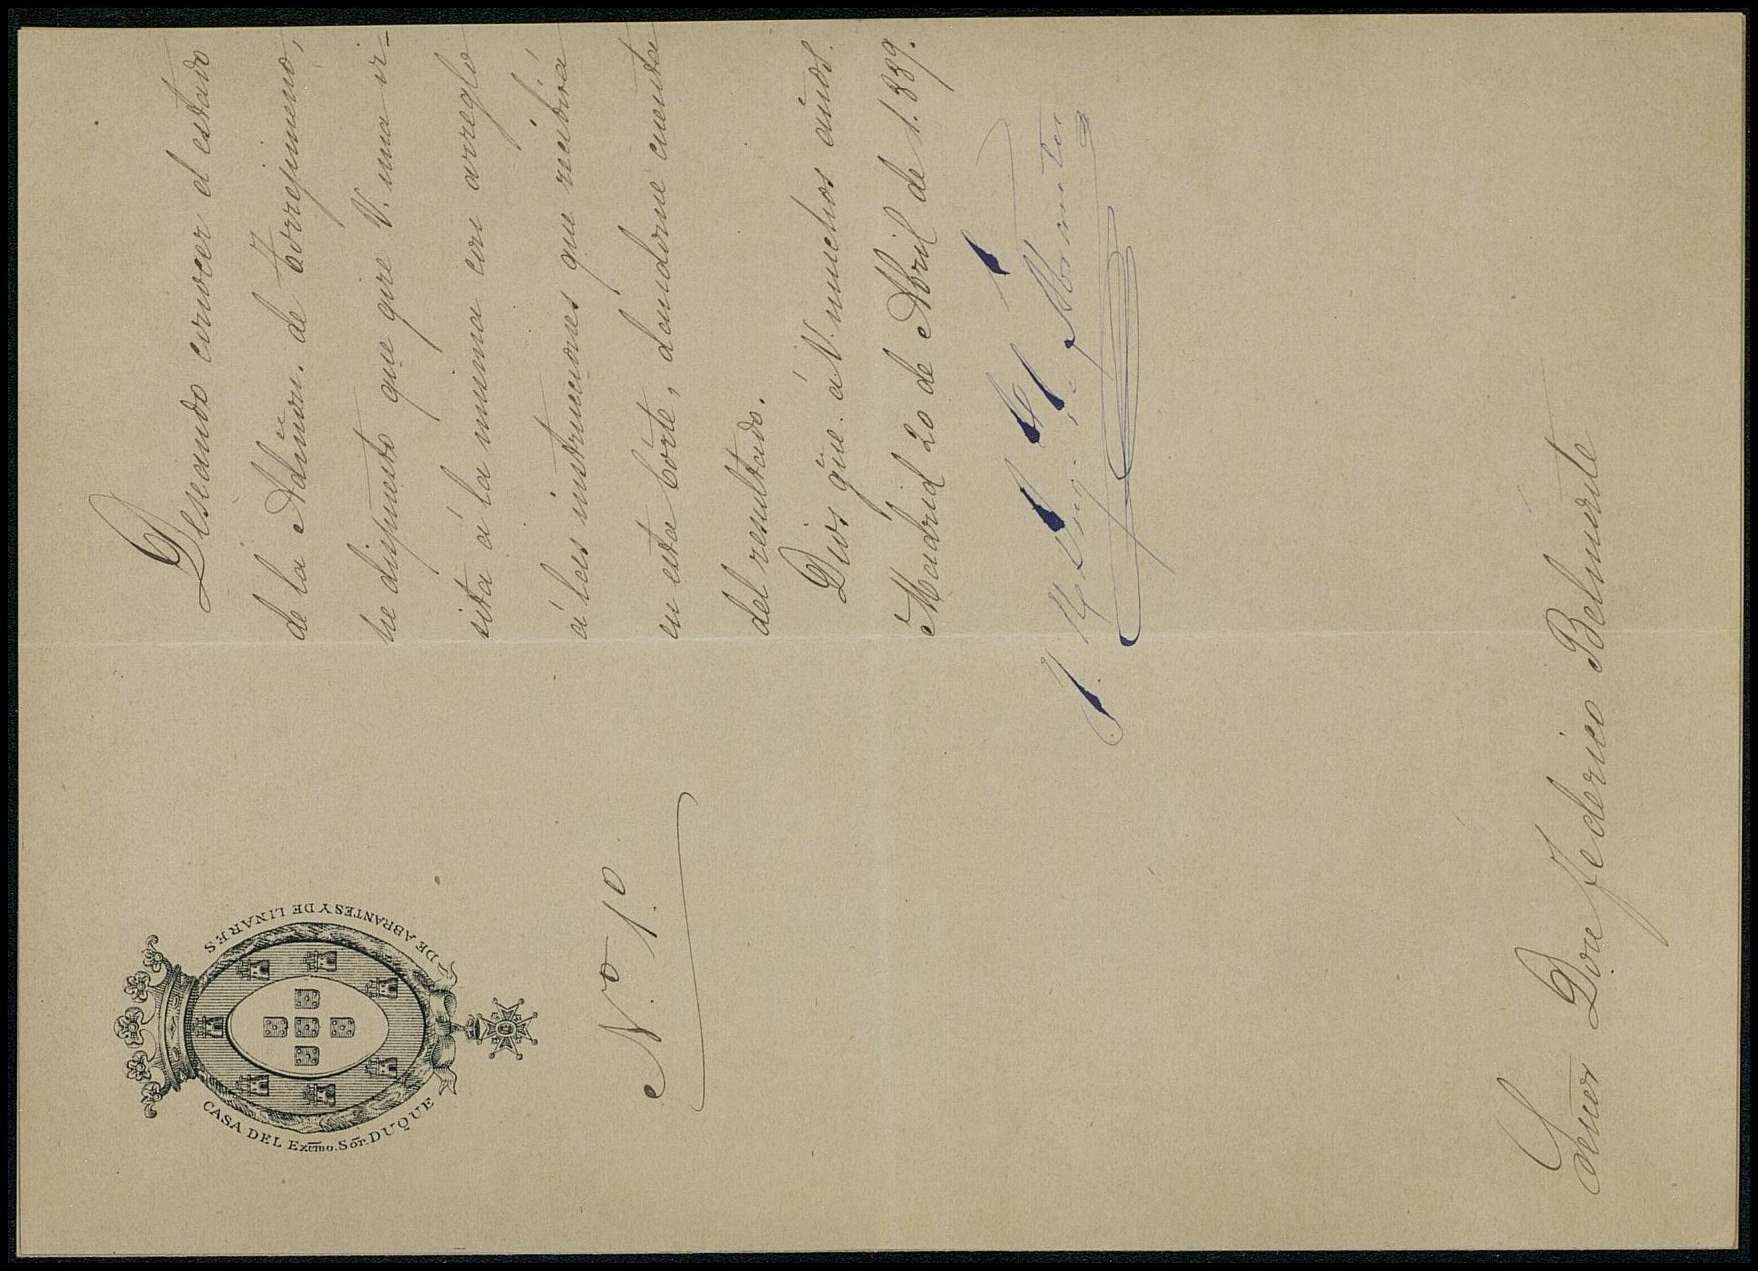 CASA DEL Exmo. Sor. DUQUE
DE ABRANTES Y DE LINARES
N.º 1.º
Deseando conocer el estado
de la Admon. de Torrejimeno,
he dispuesto que gire V. una vi-
sita á la misma con arreglo
á las instrucciones que recibirá
en esta Córte, dandome cuenta
del resultado.
Dios gũe. á V. muchos años.
Madrid 20 de Abril de 1.889.
Abrantes
Señor Don Federico Belmonte